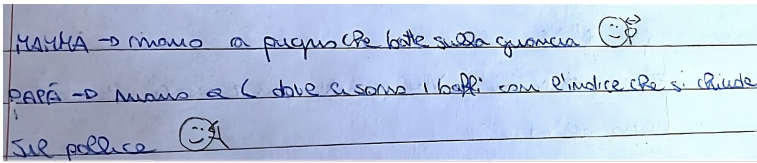 MAMMA → mano a pugno che batte sulla guancia
PAPÀ → mano a C dove ci sono i baffi con l'indice che si chiude
sul pollice